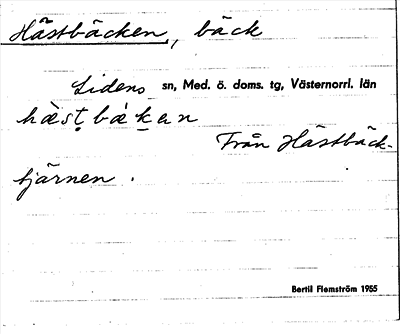 Hästbäcken, bäck
Lidens sn, Med. ö. doms. tg, Västernorrl. län
hàsṭbák̠en
Från Hästbäck-
tjärnen.
Bertil Flemström 1955